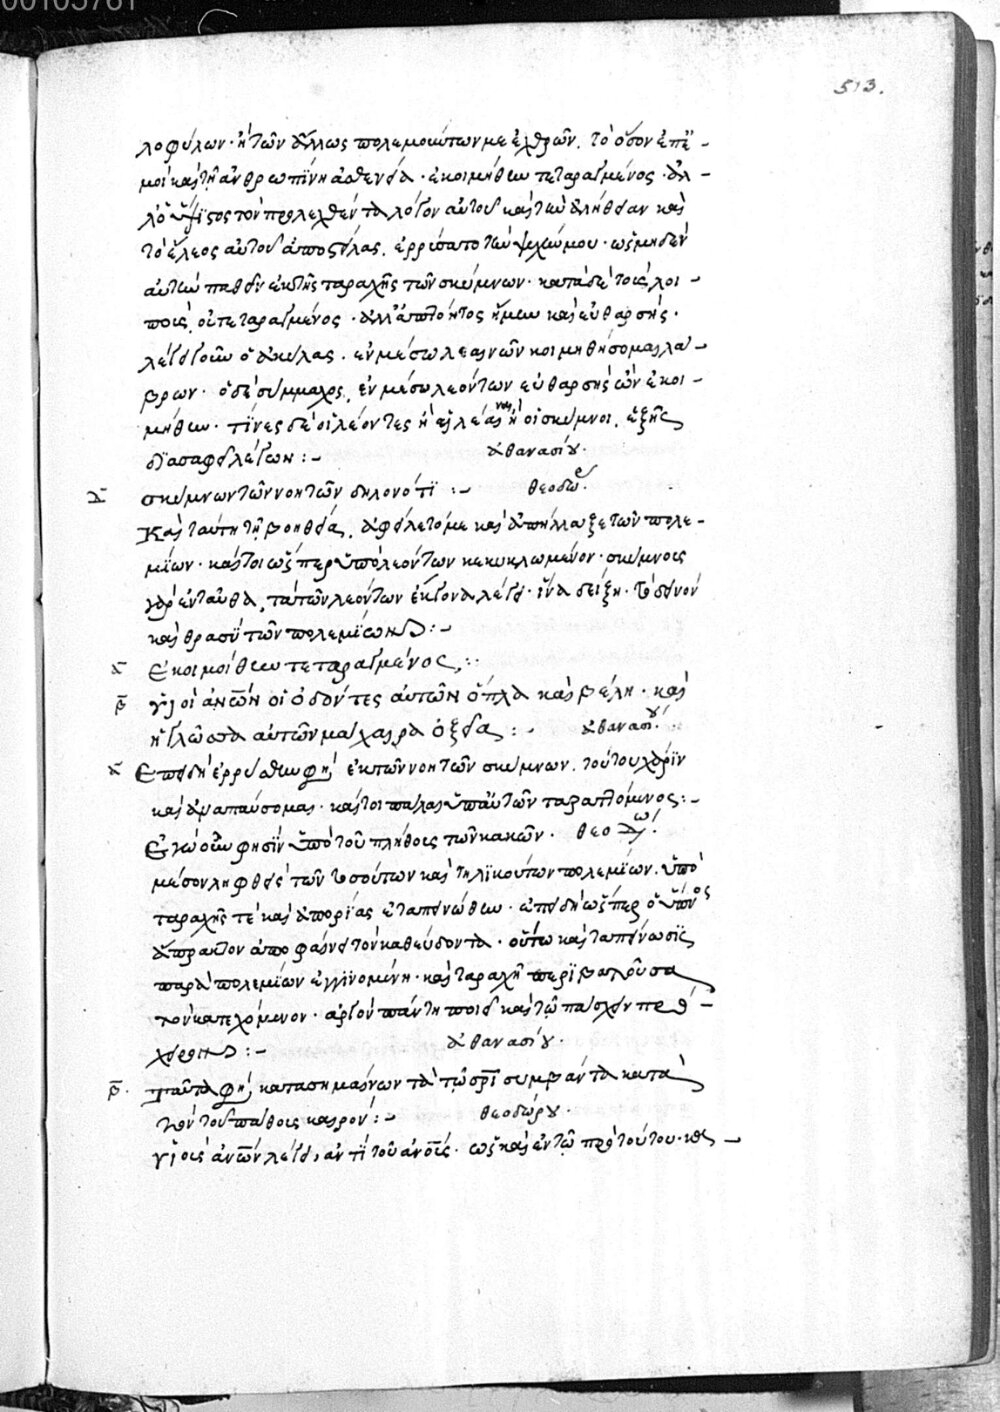 00105761
513.
λοφύλων· ἢ τῶν ἄλλως πολεμούντων με ἐχθρῶν. τὸ ὅσον ἐπ' ἐ-
μοὶ καὶ τῇ ἀνθρωπίνῃ ἀσθενείᾳ· ἐκοιμήθην τεταραγμένος· ἀλ-
λ' ὁ ὕψιστος τὸν προλεχθέντα λόγον αὐτοῦ καὶ τὴν ἀλήθειαν καὶ
τὸ ἔλεος αὐτοῦ ἀποστείλας. ἐρρύσατο τὴν ψυχήν μου· ὡς μηδὲν
αὐτὴν παθεῖν ἐκ τῆς ταραχῆς τῶν σκύμνων· κατὰ δὲ τοὺς λοι-
ποὺς, οὐ τεταραγμένος· ἀλλ' ἀπτόητος ἤμην καὶ εὐθαρσής·
λέγει γοῦν ὁ ἀκύλας. ἐν μέσῳ λεαινῶν κοιμηθήσομαι λά-
βρων· ὁ δὲ σύμμαχος, ἐν μέσῳ λεόντων εὐθαρσὴς ὢν ἐκοι-
μήθην· τίνες δὲ οἱ λέοντες ἢ αἱ λέαιναι ἢ οἱ σκύμνοι, ἑξῆς
διασαφεῖ λέγων :- ἀθανασίου·
σκύμνων τῶν νοητῶν δηλονότι :- θεοδω·
Καὶ ταύτῃ τῇ βοηθείᾳ, ἀφείλετό με καὶ ἀπήλλαξε τῶν πολε-
μίων· καίτοι ὥσπερ ὑπὸ λεόντων κεκυκλωμένον· σκύμνους
γὰρ ἐνταῦθα, τὰ τῶν λεόντων ἔκγονα λέγει· ἵνα δείξῃ· τὸ δεινὸν
καὶ θρασὺ τῶν πολεμίων :-
ἐκοιμοίθην τεταραγμένος, ::
β υἱοὶ ἀνων οἱ ὀδόντες αὐτῶν ὅπλα καὶ βέλη· καὶ
ἡ γλῶσσα αὐτῶν μάχαιρα ὀξεῖα :- ἀθανασίου·
Ἐπειδὴ ἐρρύσθην φησὶ ἐκ τῶν νοητῶν σκύμνων. τούτου χάριν
καὶ ἀναπαύσομαι· καίτοι πάλαι ὑπ' αὐτῶν ταραττόμενος :-
Ἐγὼ οὖν φησὶν ὑπὸ τοῦ πλήθους τῶν κακῶν· θεοδω·
μέσον ληφθεὶς τῶν τοσούτων καὶ τηλικούτων πολεμίων. ὑπὸ
ταραχῆς τὲ καὶ ἀπορίας ἐταπεινώθην· ἐπειδὴ ὥσπερ ὁ ὕπνος
ἄπρακτον ἀποφαίνει τὸν καθεύδοντα· οὕτω καὶ ταπείνωσις
παρὰ πολεμίων ἐγγινομένη· καὶ ταραχὴ περιβάλλουσα
τὸν κατεχόμενον· ἀργὸν πάντη ποιεῖ καὶ τῷ πάσχειν
ἀθανασίου·
β· Ταῦτα φησὶ, κατασημαίνων τὰ τῷ σρι συμβάντα κατὰ
τὸν τοῦ πάθους καιρόν :- θεοδώρου·
υἱοὺς ἀνων λέγει, ἀντὶ τοῦ ἀνους· ὡς καὶ ἐν τῷ πρὸ τούτου· καὶ -